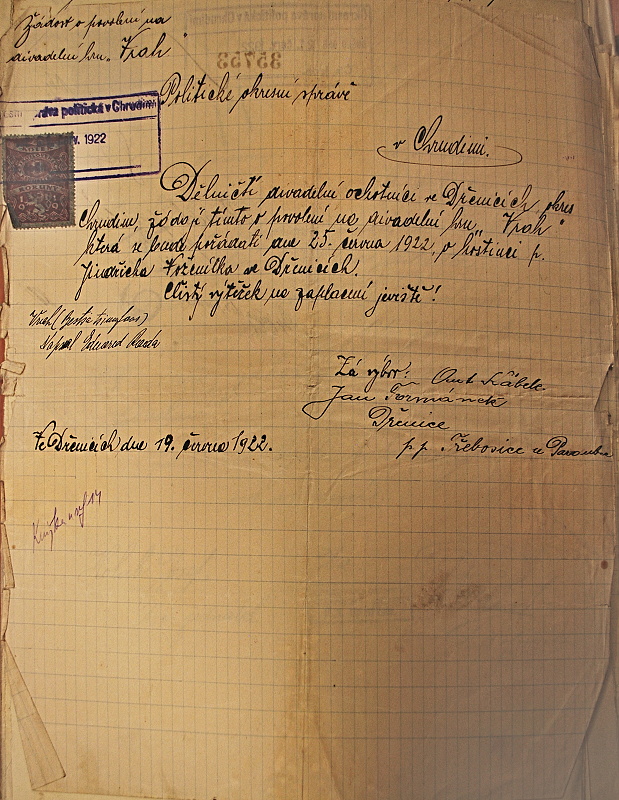 Žádost o povolení na
divadelní hru „Vrah"
Politické okresní správě
v Chrudimi.
správa politická v Chrudimi
1922
35753
Dělničtí divadelní ochotníci ve Dřenicích, okres
Chrudim, žádají tímto o povolení na divadelní hru „Vrah"
která se bude pořádati dne 25. června 1922, v hostinci p.
Jindřicha Vožeňílka ve Dřenicích.
Čistý výtěžek na zaplacení jeviště!
Vrah
Napsal Eduard Rada
Za výbor: Ant
Jan Formánek
Dřenice
pp Třebosice u Pardubic
Ve Dřenicích dne 19. června 1922.